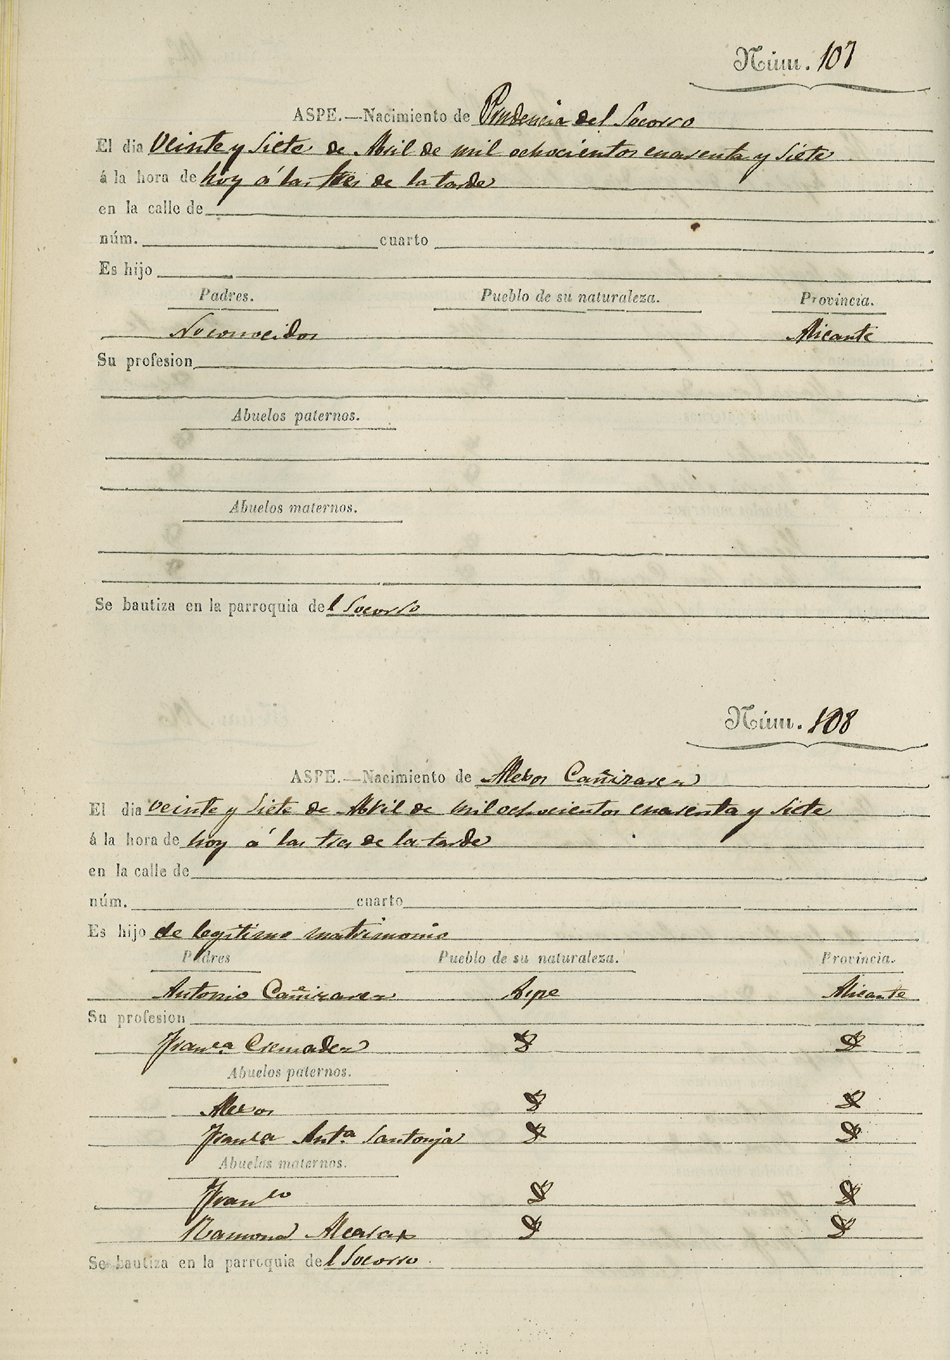 Núm. 107
ASPE.—Nacimiento de Prudencia del Socorro
El dia Veinte y Siete de Abril de mil ochocientos cuarenta y siete
á la hora de hoy á las tres de la tarde
en la calle de
núm. cuarto
Es hijo
Padres. Pueblo de su naturaleza. Provincia.
No conocidos Alicante
Su profesion
Abuelos paternos.
Abuelos maternos.
Se bautiza en la parroquia del Socorro
Núm. 108
ASPE.—Nacimiento de Cañizares
El dia Veinte y Siete de Abril de mil ochocientos cuarenta y siete
á la hora de hoy á las tres de la tarde
en la calle de
núm. cuarto
Es hijo de legitimo matrimonio
Padres Pueblo de su naturaleza. Provincia.
Antonio Cañizares Aspe Alicante
Su profesion
Franca Cremades
Abuelos paternos.
Franca Anta Santonja
Abuelos maternos.
Franco
Ramona
Se bautiza en la parroquia del Socorro